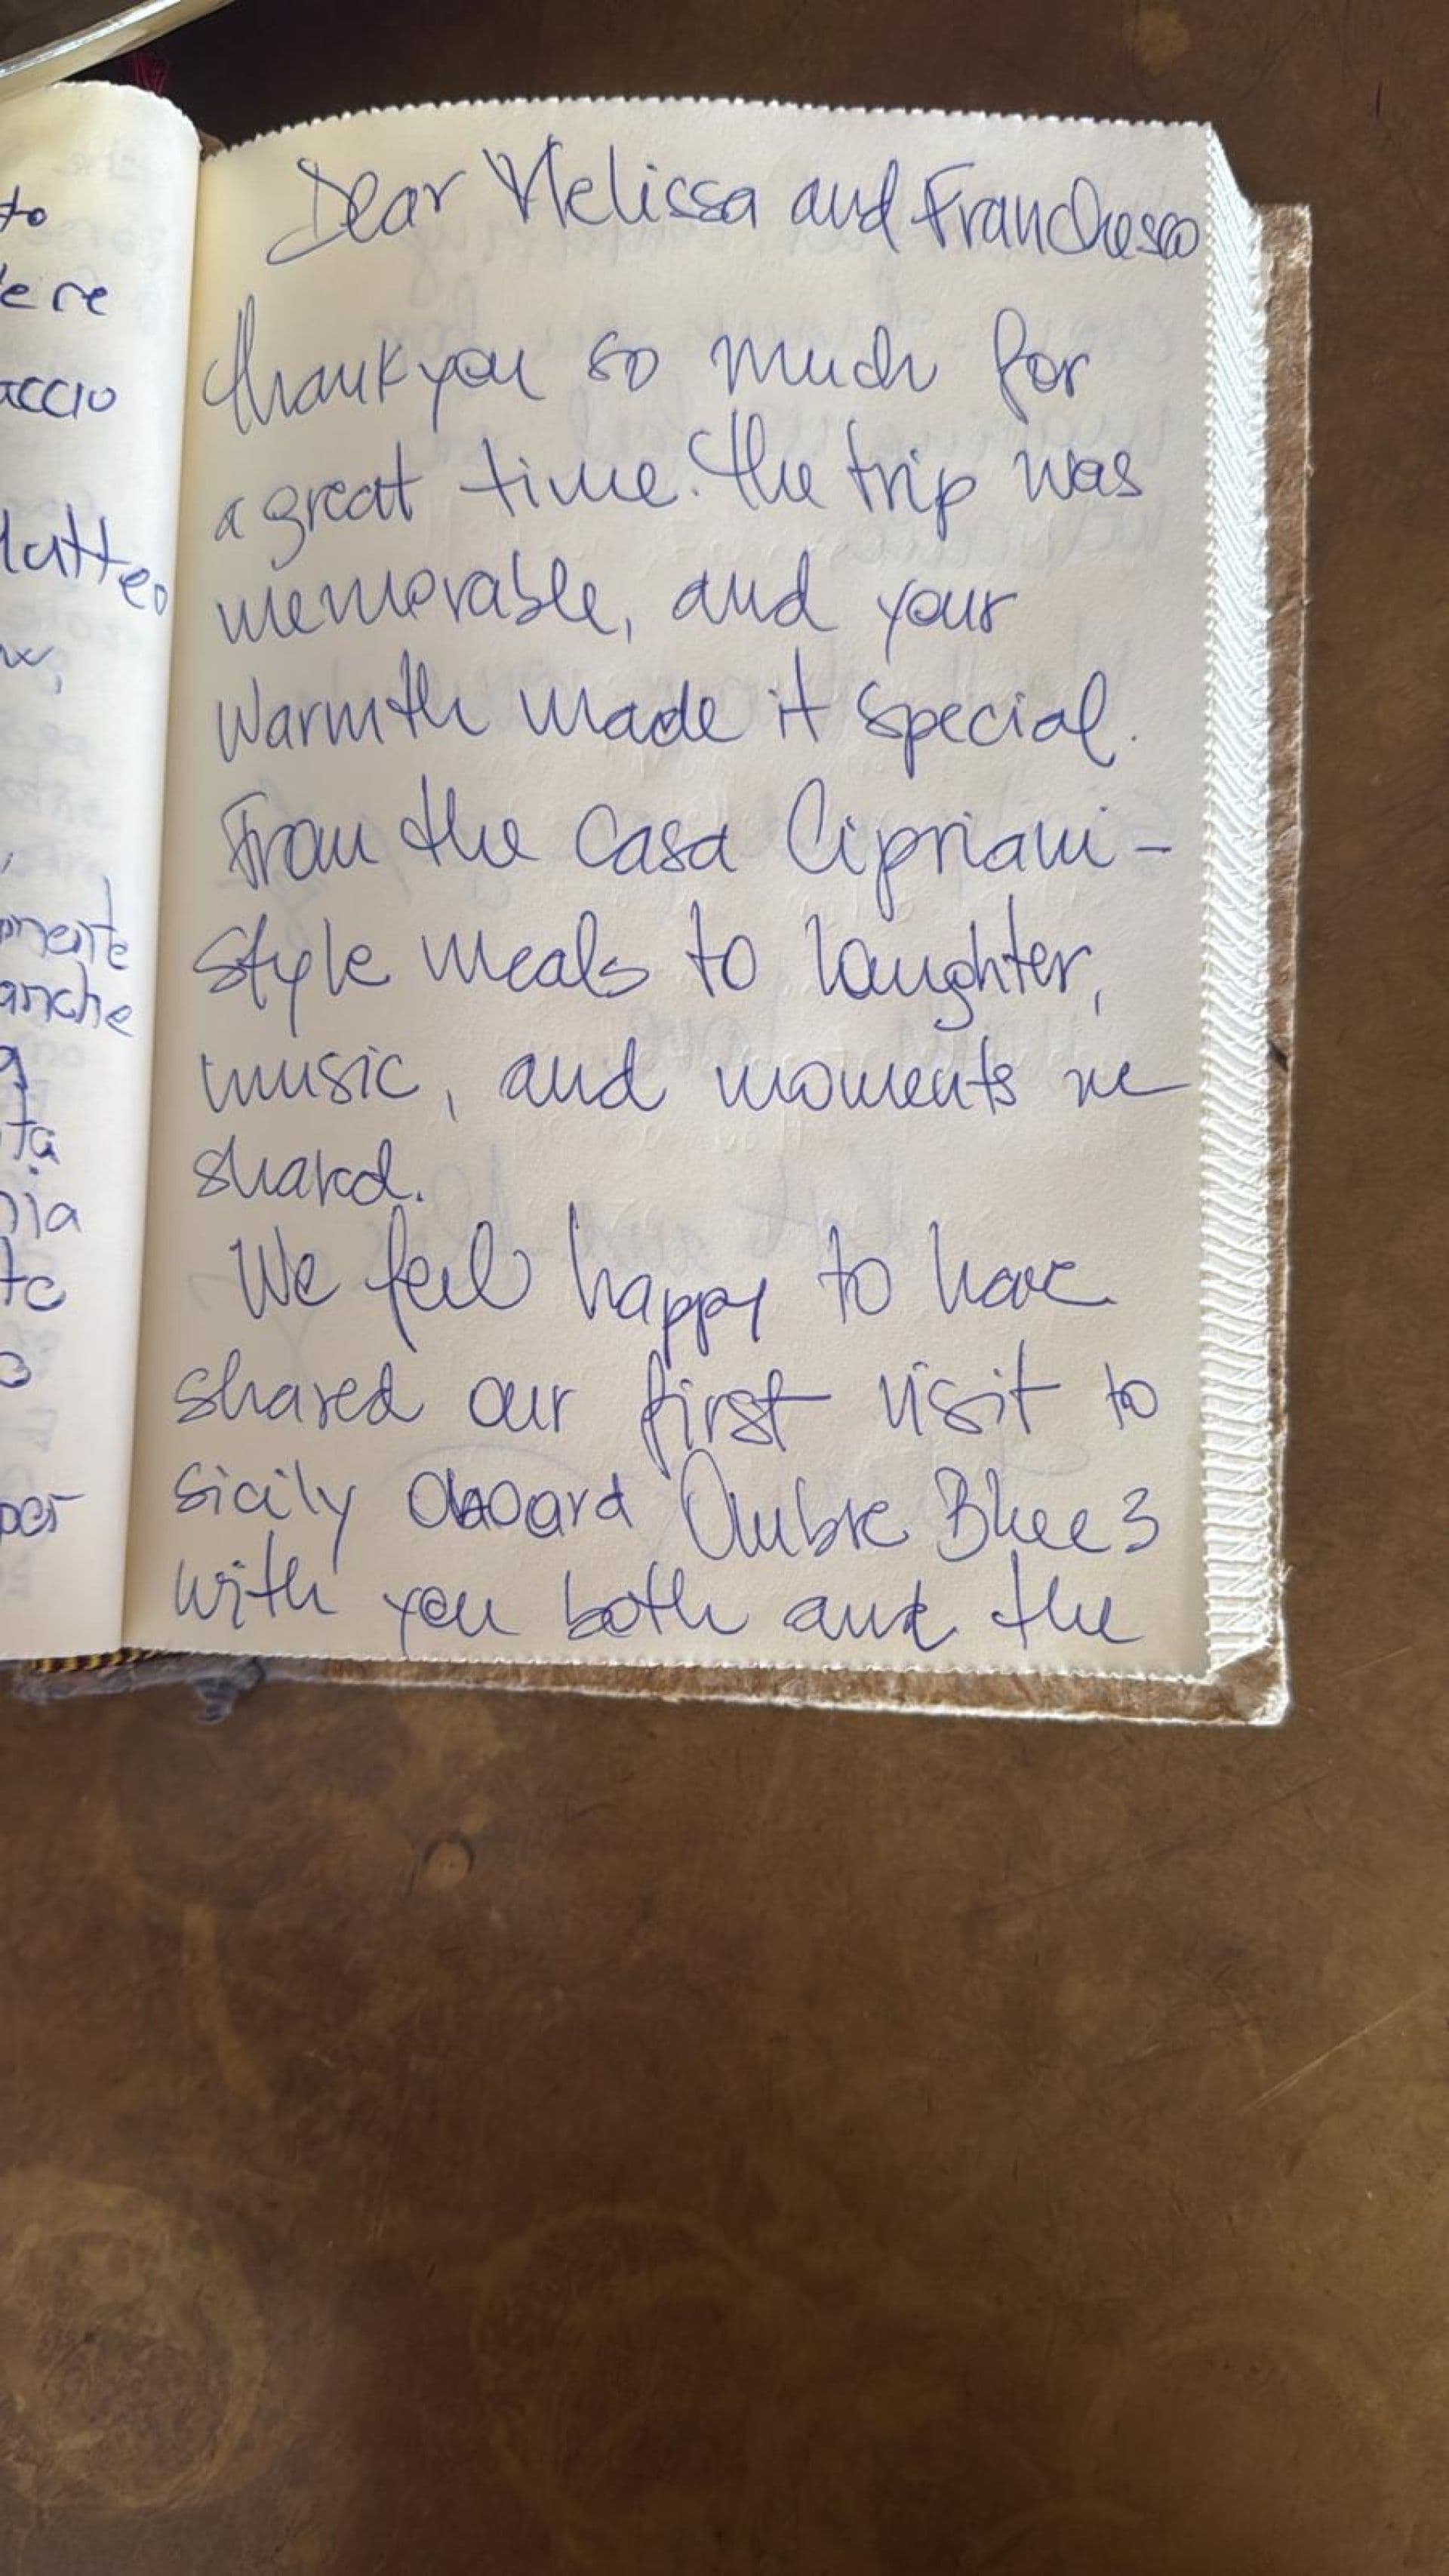 to
ere
accio
latteo
mente
anche
ta
nia
to
per
Dear Melissa and Franchesco
thank you so much for
a great time. The trip was
memorable, and your
warmth made it special.
From the Casa Cipriani-
style meals to laughter,
music, and moments we
shared.
We feel happy to have
shared our first visit to
Sicily aboard Ombre Blue 3
with you both and the